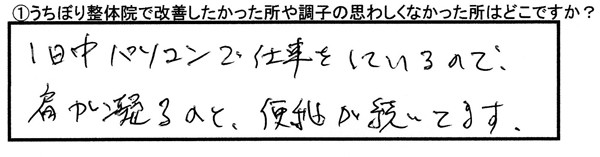 ①うちぼり整体院で改善したかった所や調子の思わしくなかった所はどこですか？
1日中パソコンで仕事をしているので、
肩が凝るのと、便秘が続いてます。